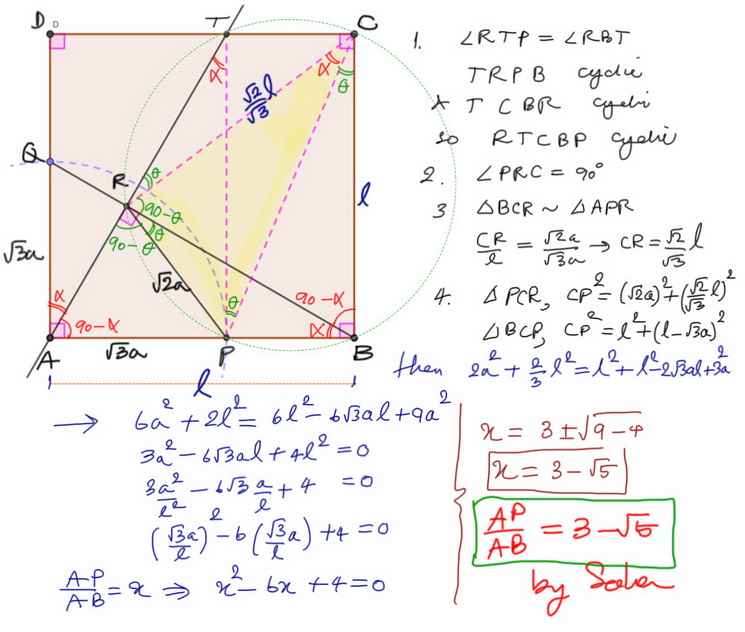 D D T C
α α θ
√2/√3 l
Q
R θ
90-θ
90-θ θ
l
√3a
√2a
α θ 90-α
90-α α
A √3a P B
l
1. ∠RTP = ∠RBT
TRPB cyclic
∧ TCBR cyclic
so RTCBP cyclic
2. ∠PRC = 90°
3 △BCR ~ △APR
CR/l = √2a/√3a → CR = √2/√3 l
4. △PCR, CP² = (√2a)² + (√2/√3 l)²
△BCP, CP² = l² + (l-√3a)²
then 2a² + 2/3 l² = l² + l² - 2√3al + 3a²
→ 6a² + 2l² = 6l² - 6√3al + 9a²
3a² - 6√3al + 4l² = 0
3a²/l² - 6√3 a/l + 4 = 0
(√3a/l)² - 6(√3a/l) + 4 = 0
AP/AB = x ⇒ x² - 6x + 4 = 0
x = 3 ± √(9-4)
x = 3 - √5
AP/AB = 3 - √5
by